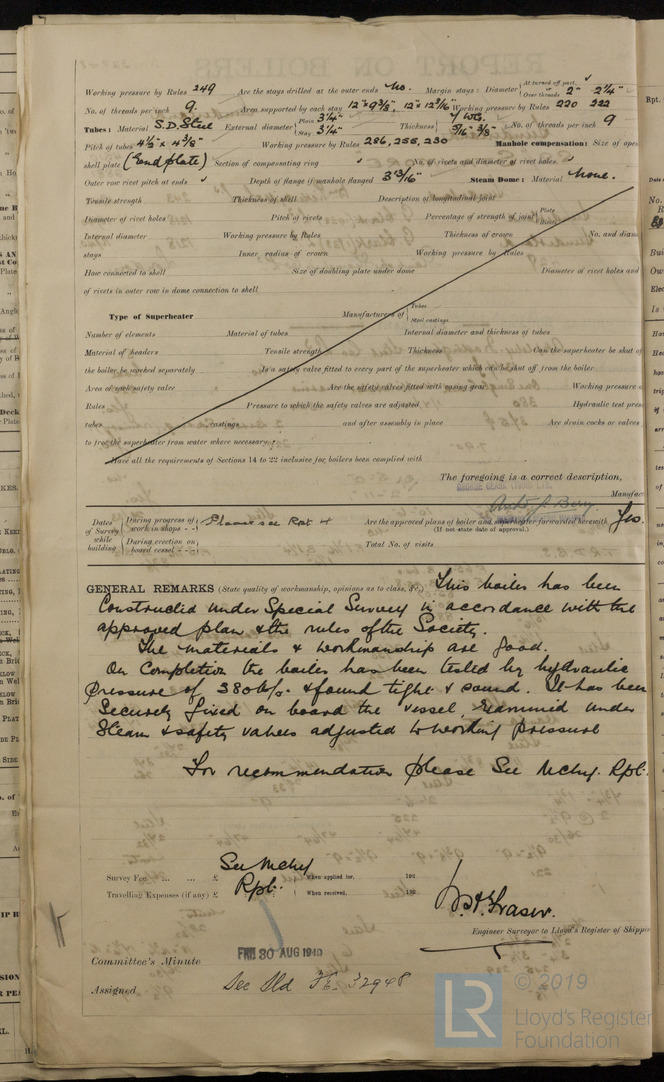 Working pressure by Rules 249 Are the stays drilled at the outer ends No. Margin stays: Diameter { At turned off part, ✓ Over threads 2" 2¼"
No. of threads per inch 9. Area supported by each stay 12"×9⅜", 12"×12 3/16" Working pressure by Rules 220 222
Tubes: Material S.D. Steel External diameter { Plain 3¼" Stay 3¼" Thickness { 5/16" 3/8" No. of threads per inch 9
Pitch of tubes 4½" x 4⅜" Working pressure by Rules 286, 255, 230 Manhole compensation: Size of open
shell plate (End plate) Section of compensating ring ✓ No. of rivets and diameter of rivet holes. ✓
Outer row rivet pitch at ends ✓ Depth of flange if manhole flanged 3 13/16" Steam Dome: Material None.
Tensile strength Thickness of shell Description of longitudinal joint
Diameter of rivet holes Pitch of rivets Percentage of strength of joint { Plate Rivets
Internal diameter Working pressure by Rules Thickness of crown No. and diam
stays Inner radius of crown Working pressure by Rules
How connected to shell Size of doubling plate under dome Diameter of rivet holes and
of rivets in outer row in dome connection to shell
Type of Superheater Manufacturers of { Tubes Steel castings
Number of elements Material of tubes Internal diameter and thickness of tubes
Material of headers Tensile strength Thickness Can the superheater be shut of
the boiler be worked separately Is a safety valve fitted to every part of the superheater which can be shut off from the boiler
Area of each safety valve Are the safety valves fitted with easing gear Working pressure
Rules Pressure to which the safety valves are adjusted Hydraulic test press
tubes castings and after assembly in place Are drain cocks or valves
to free the superheater from water where necessary
Have all the requirements of Sections 14 to 22 inclusive for boilers been complied with
The foregoing is a correct description,
Manufac
Dates of Survey while building { During progress of work in shops - - Please see Rpt 4 Are the approved plans of boiler and superheater forwarded herewith Yes.
(If not state date of approval.)
During erection on board vessel - - - Total No. of visits
GENERAL REMARKS (State quality of workmanship, opinions as to class, &c. This boiler has been
Constructed under Special Survey in accordance with the
approved plan & the rules of the Society.
The materials & workmanship are good.
On Completion the boiler has been tested by hydraulic
pressure of 380 lb/s. & found tight & sound. It has been
Securely fixed on board the vessel, examined under
steam & safety valves adjusted to working pressure
For recommendation please See Mchy. Rpt.
Survey Fee ... ... £ See Mchy Rpt. When applied for, 192
Travelling Expenses (if any) £ When received, 192
Fraser.
Engineer Surveyor to Lloyd's Register of Shippin
Committee's Minute FRI 30 AUG 1940
Assigned See Sld F.E. 32948
© 2019
LR
Lloyd's Register
Foundation